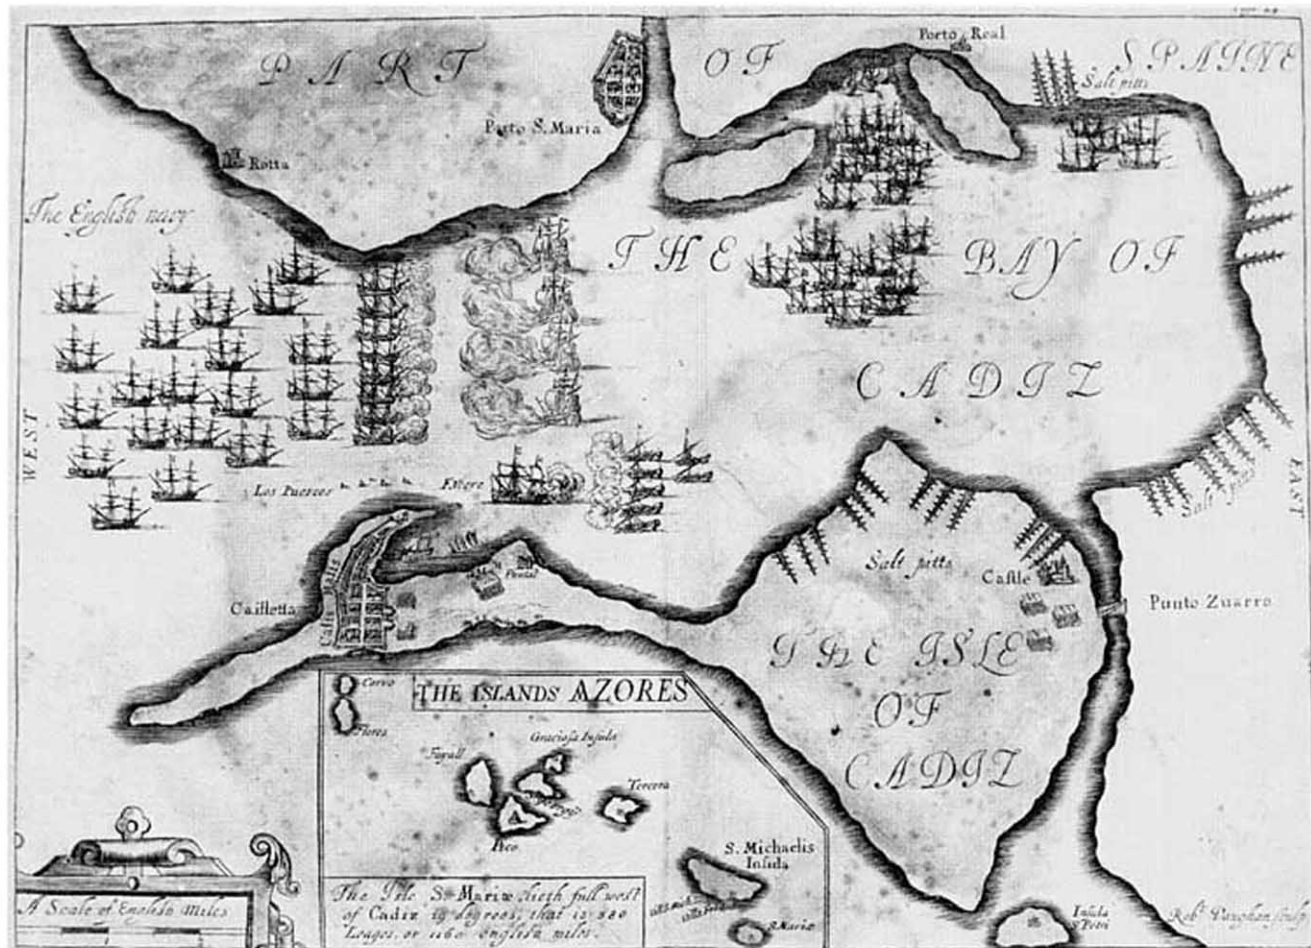 PART
OF
SPAINE
Porto Real
Salt pitts
Porto S. Maria
Rotta
The English navy
THE BAY OF
CADIZ
WEST
EAST
Los Puercos
Salt pitts
Salt pitts
Castle
Punto Zuarro
Puntal
Caisletta
THE ISLE
OF
CADIZ
THE ISLANDS AZORES
Corvo
Flores
Fayall
Graciosa Insula
Tercera
Pico
S. Michaelis
Insula
S. Mariæ
The Isle S. Mariæ lieth full west
of Cadiz 19 degrees, that is 380
Leages, or 1160 english miles.
A Scale of English Miles
Insula
S. Petri
Robt. Vaughan sculp